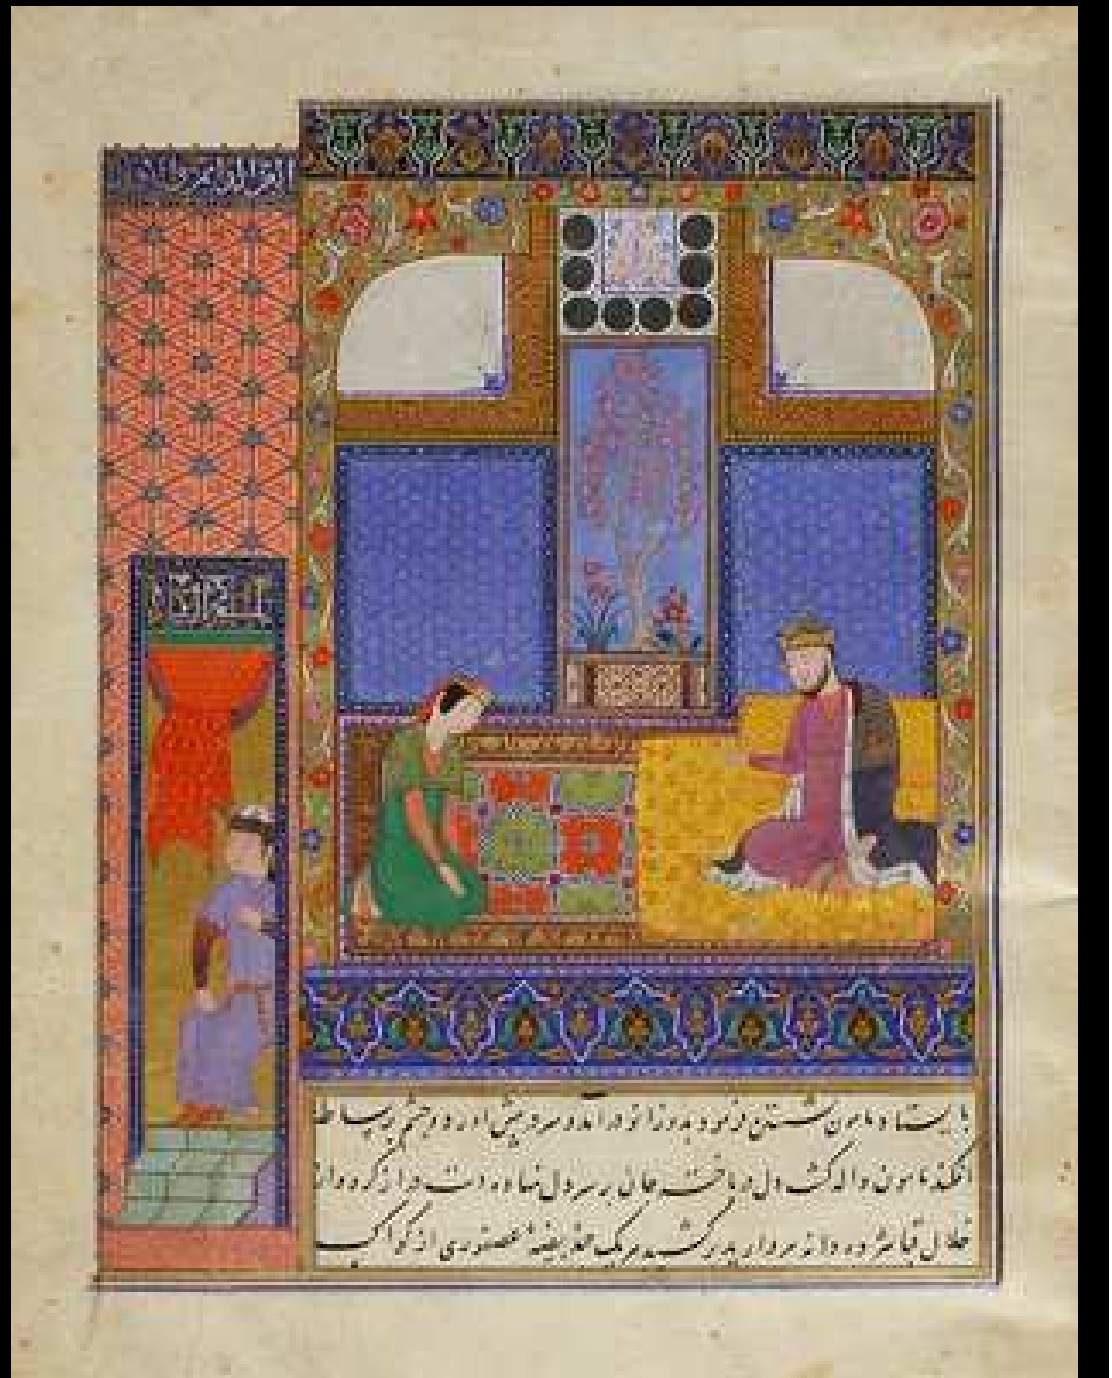 بایستاد مامون نشستن فرمود بدو زانو درآمد و سر در پیش آورد و چشم بر بساط
افکند مامون واله گشت دل درباخته جان بر سر دل نهاد و دست دراز کرد و از
خلال قبا هژده دانه مروارید برکشید هر یک چند بیضه عصفوری از کواکب